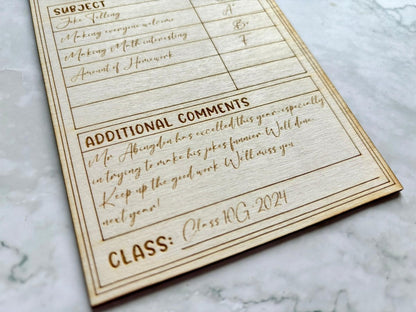 SUBJECT
Joke Telling A
Making everyone welcome B+
Making Math interesting F
Amount of Homework
ADDITIONAL COMMENTS
Mr Abingdon has excelled this year especially
in trying to make his jokes funnier. Well done.
Keep up the good work. We'll miss you
next year!
CLASS: Class 10G 2024